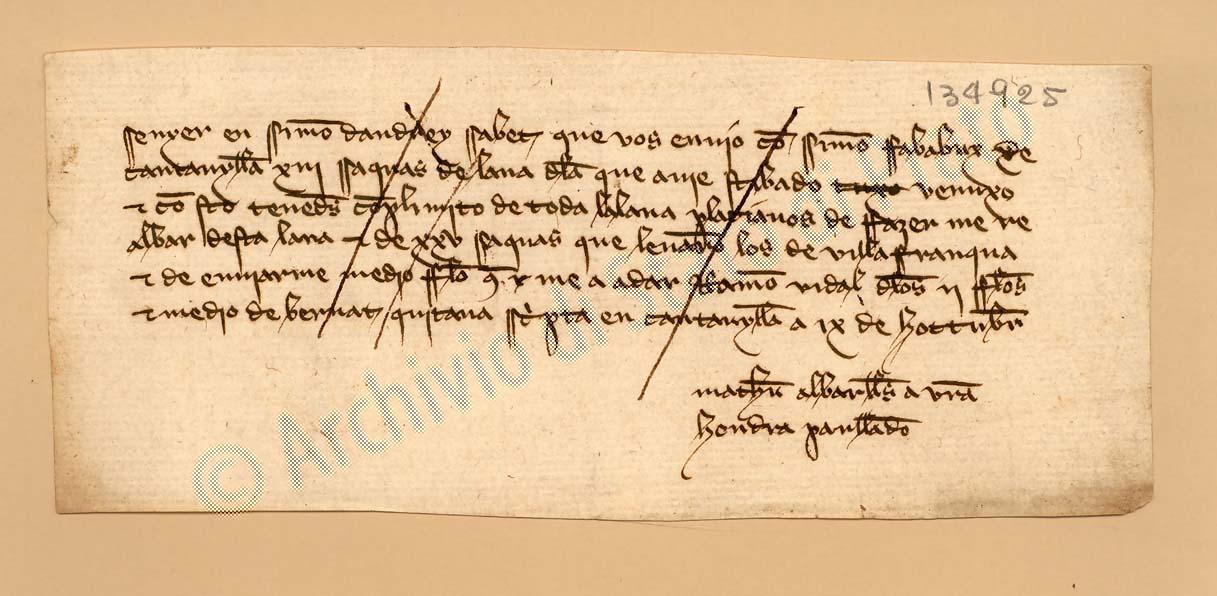 134925
senyer en simo dandrey sabet que vos enuio co simo sababux de
cantauylla xiii saquas de lana dla que auie stibado venuxo
& co sto teneds coplimito de toda la lana plazianos de ffazer me re
albar desta lana & de xxv saquas que leuaro los de villaffranqua
& de enuiarme medio fflo q me a adar Ramo vidal dlos ii fflos
& medio de bernat quitana scpta en cantauylla a ix de hottubr
albarlls a vra
hondra
© Archivio di Stato di Prato